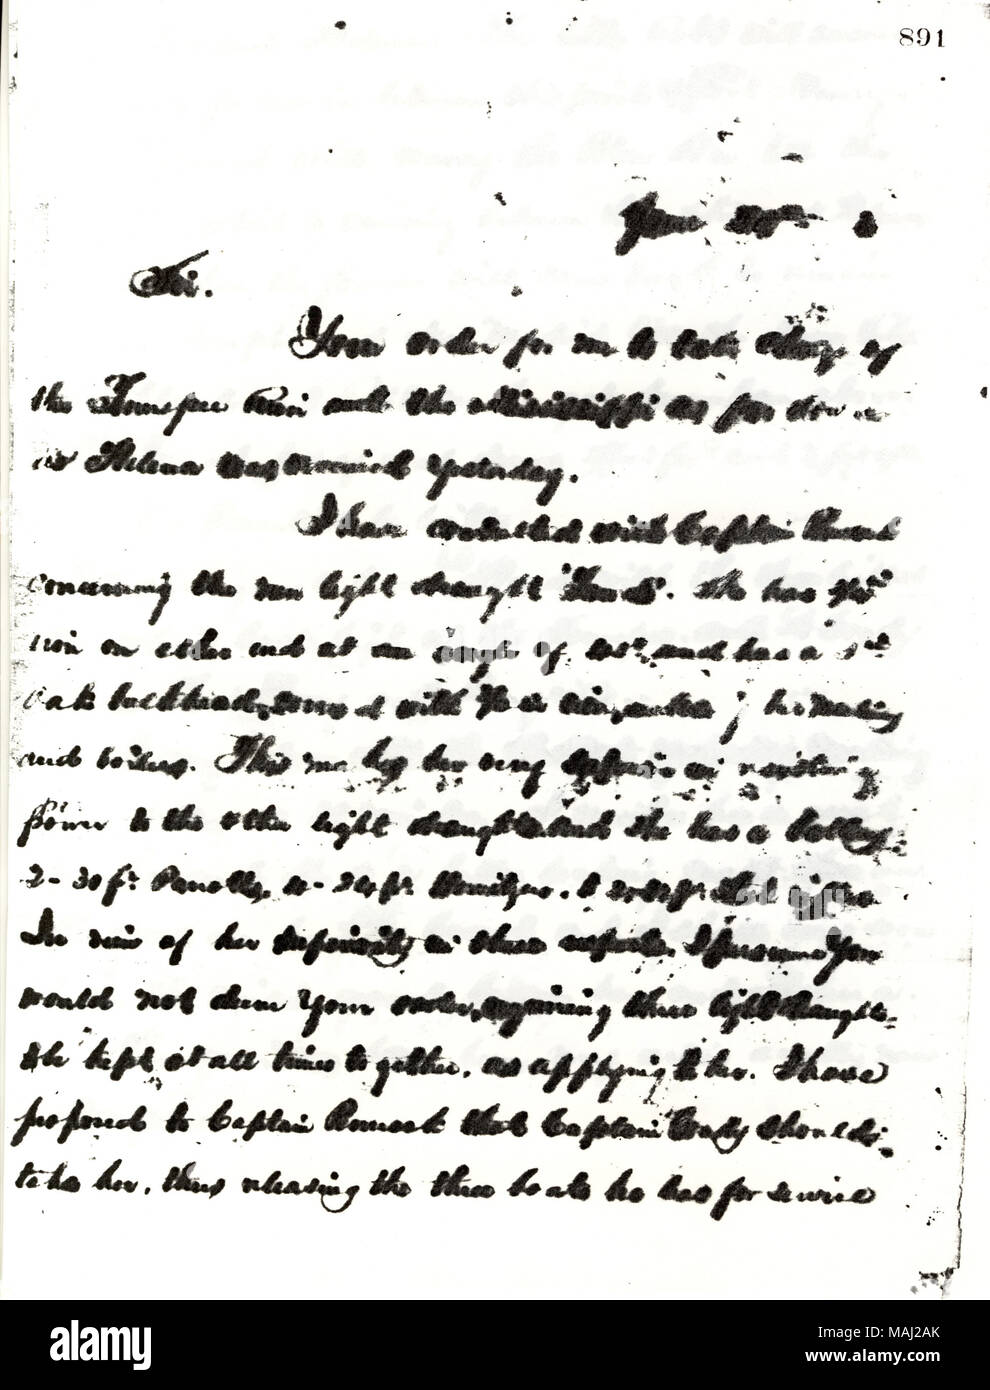 891
June
Sir.
Your order for me to take charge of
the Tennessee River and the Mississippi as far down
as Helena was received yesterday.
I have consulted with Captain
concerning the new light draught
iron on either end at an angle of and has a
oak bulkheads, covered with iron, of her machinery
and boilers. This makes her very superior in resisting
power to the other light draughts and she has a battery
2-30 pr. Parrotts, 4-24 pr. Howitzers,
In view of her superiority in these respects, I presume you
would not deem your order, requiring these light draughts
be kept at all times together, as applying to her. I have
proposed to Captain Pennock that Captain should
take her, thus releasing the three boats he has for service
alamy
Image ID: MAJ2AK
www.alamy.com